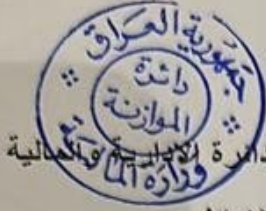 جمهورية العراق
دائرة
الموازنة
وزارة المالية
دائرة الادارية والمالية